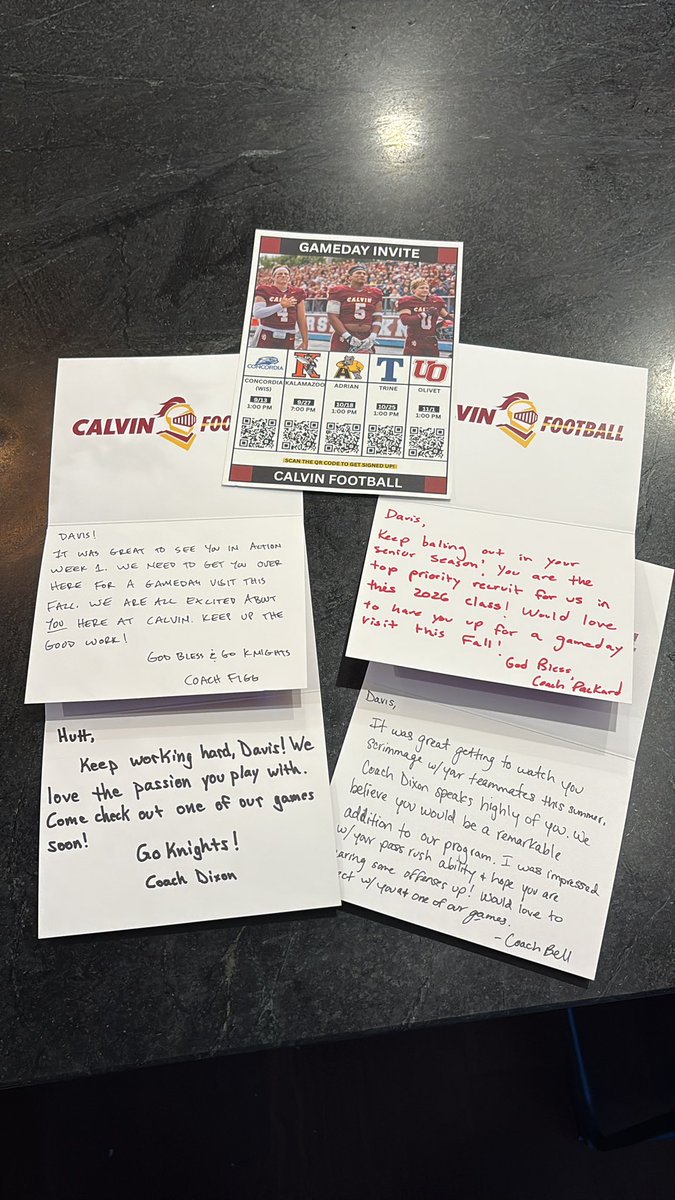 GAMEDAY INVITE
CALVIN
4
CALVIN
5
CONCORDIA
K
A
T
UO
CONCORDIA (WIS)
KALAMAZOO
ADRIAN
TRINE
OLIVET
9/13
9/27
10/18
10/25
11/1
1:00 PM
7:00 PM
1:00 PM
1:00 PM
1:00 PM
SCAN THE QR CODE TO GET SIGNED UP!
CALVIN FOOTBALL
CALVIN FOO
VIN FOOTBALL
DAVIS!
IT WAS GREAT TO SEE YOU IN ACTION
WEEK 1. WE NEED TO GET YOU OVER
HERE FOR A GAMEDAY VISIT THIS
FALL. WE ARE ALL EXCITED ABOUT
YOU HERE AT CALVIN. KEEP UP THE
GOOD WORK!
GOD BLESS & GO KNIGHTS
COACH FIGG
Davis,
Keep balling out in your
senior season! You are the
top priority recruit for us in
this 2026 class! Would love
to have you up for a gameday
visit this Fall!
God Bless,
Coach Packard
Hutt,
Keep working hard, Davis! We
love the passion you play with.
Come check out one of our games
soon!
Go Knights!
Coach Dixon
Davis,
It was great getting to watch you
scrimmage w/your teammates this summer.
Coach Dixon speaks highly of you. We
believe you would be a remarkable
addition to our program. I was impressed
w/your pass rush ability & hope you are
earing some offenses up! Would love to
ect w/you at one of our games.
- Coach Bell